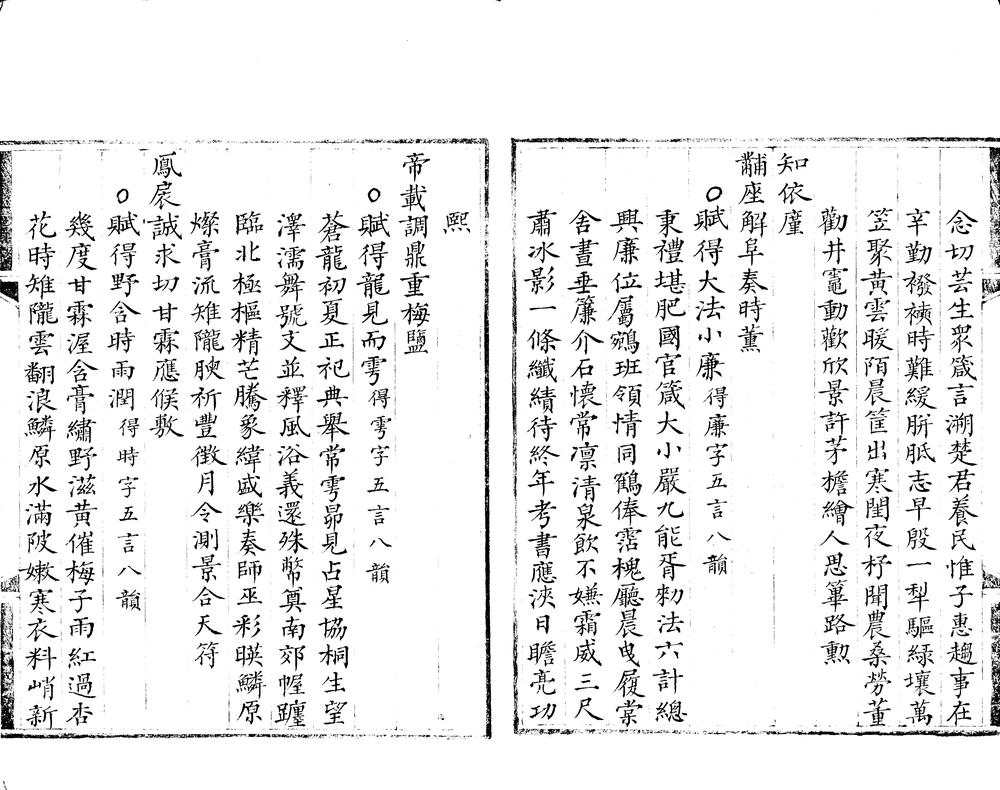 念切芸生眾箴言溯楚君養民惟子惠趨事在
辛勤襏襫時難緩胼胝志早殷一犁驅綠壤萬
笠聚黃雲暖陌晨筐出寒閨夜杼聞農桑勞董
勸井竈動歡欣景許茅檐繪人思蓽路勲
知依廑
黼座解阜奏時薰
○賦得大法小廉得廉字五言八韻
秉禮堪肥國官箴大小嚴九能胥勑法六計總
興廉位屬鵷班領情同鶴俸霑槐廳晨曵履棠
舍晝垂簾介石懷常凛清泉飲不嫌霜威三尺
肅冰影一條纖績待終年考書應浹日瞻亮功
熙
帝載調鼎重梅鹽
○賦得龍見而雩得雩字五言八韻
蒼龍初夏正祀典舉常雩昴見占星協桐生望
澤濡舞號文並釋風浴義還殊幣奠南郊幄躔
臨北極樞精芒騰象緯盛樂奏師巫彩暎鱗原
燦膏流雉隴腴祈豐徵月令測景合天符
鳳扆誠求切甘霖應候敷
○賦得野含時雨潤得時字五言八韻
幾度甘霖渥含膏繡野滋黃催梅子雨紅過杏
花時雉隴雲翻浪鱗原水滿陂嫩寒衣料峭新